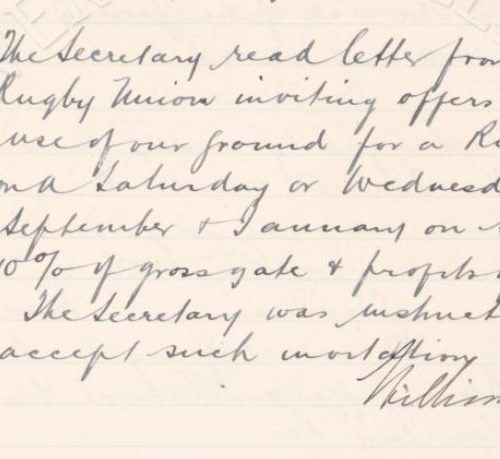 The Secretary read letter from
Rugby Union inviting offers
use of our ground for a Ru
on a Saturday or Wednesd
September & January on
10% of gross gate & profits
The Secretary was instruct
accept such invitation
William